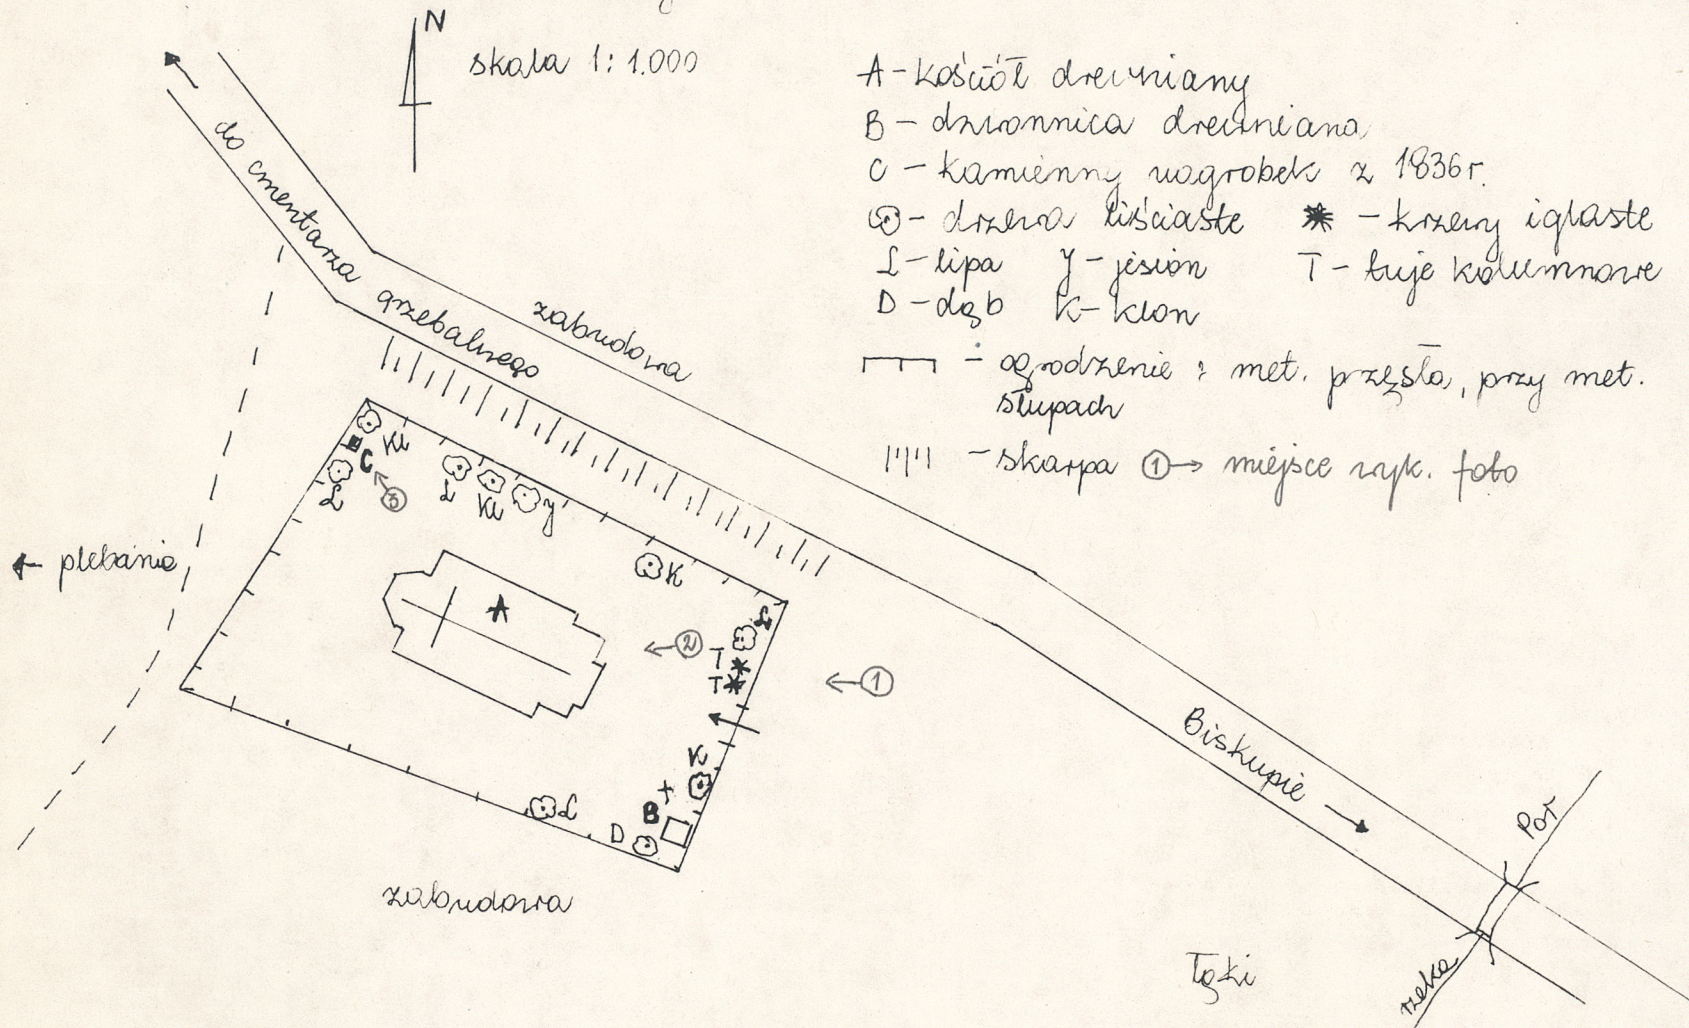 N
skala 1:1.000
A - kościół drewniany
B - dzwonnica drewniana
C - kamienny nagrobek z 1836r.
- drzewa liściaste
- krzewy iglaste
L - lipa J - jesion
T - tuje kolumnowe
D - dąb K - klon
- ogrodzenie : met. przęsła, przy met.
słupach
- skarpa 1 → miejsce wyk. foto
do cmentarza grzebalnego
zabudowa
Kl
C
L
3
L
Kl
J
K
← plebania
A
L
2
T
T
1
K
B
D
L
zabudowa
Biskupie →
Por
rzeka
łąki